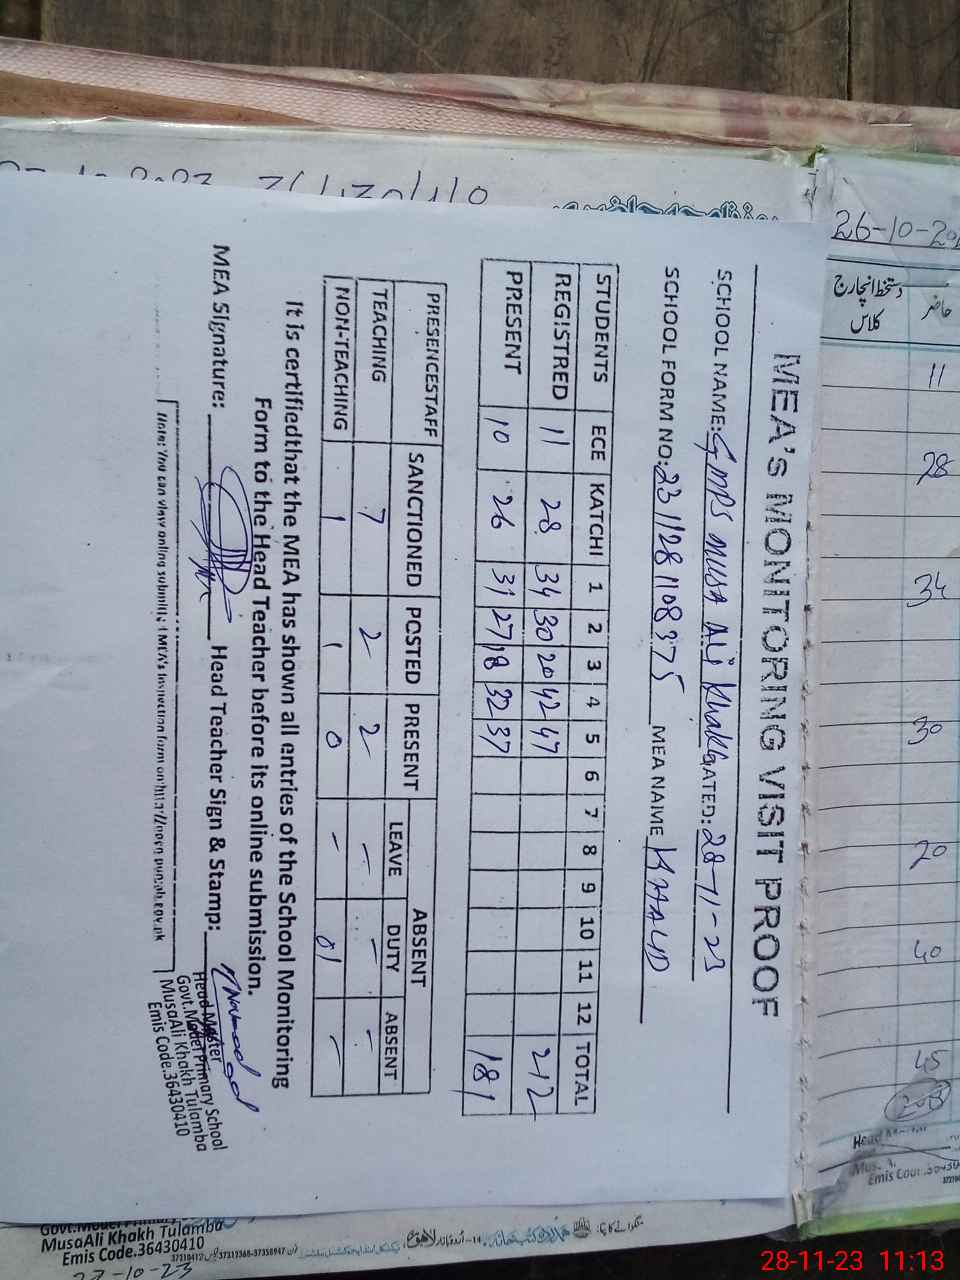 MEA's MONITORING VISIT PROOF
SCHOOL NAME: GMPS MUSA Ali Khakh DATED: 28-11-23
SCHOOL FORM NO: 2311281108375 MEA NAIME KHALID
STUDENTS ECE KATCHI 1 2 3 4 5 6 7 8 9 10 11 12 TOTAL
REGISTRED 11 28 34 30 20 42 47 212
PRESENT 10 26 31 27 18 32 37 181
PRESENCESTAFF SANCTIONED POSTED PRESENT ABSENT
LEAVE DUTY ABSENT
TEACHING 7 2 2 - - -
NON-TEACHING 1 1 0 - 01 -
It is certifiedthat the MEA has shown all entries of the School Monitoring
Form to the Head Teacher before its online submission.
MEA Signature: Head Teacher Sign & Stamp:
Head Master
Govt.Model Primary School
MusaAli Khakh Tulamba
Emis Code.36430410
Note: You can view online submitted MEA's Inspection form on
26-10-20
دستخط انچارج کلاس
حاضر
11
28
34
30
20
40
45
208
Emis Code.
Govt.Model Primary
MusaAli Khakh Tulamba
Emis Code.36430410
27-10-23
28-11-23 11:13